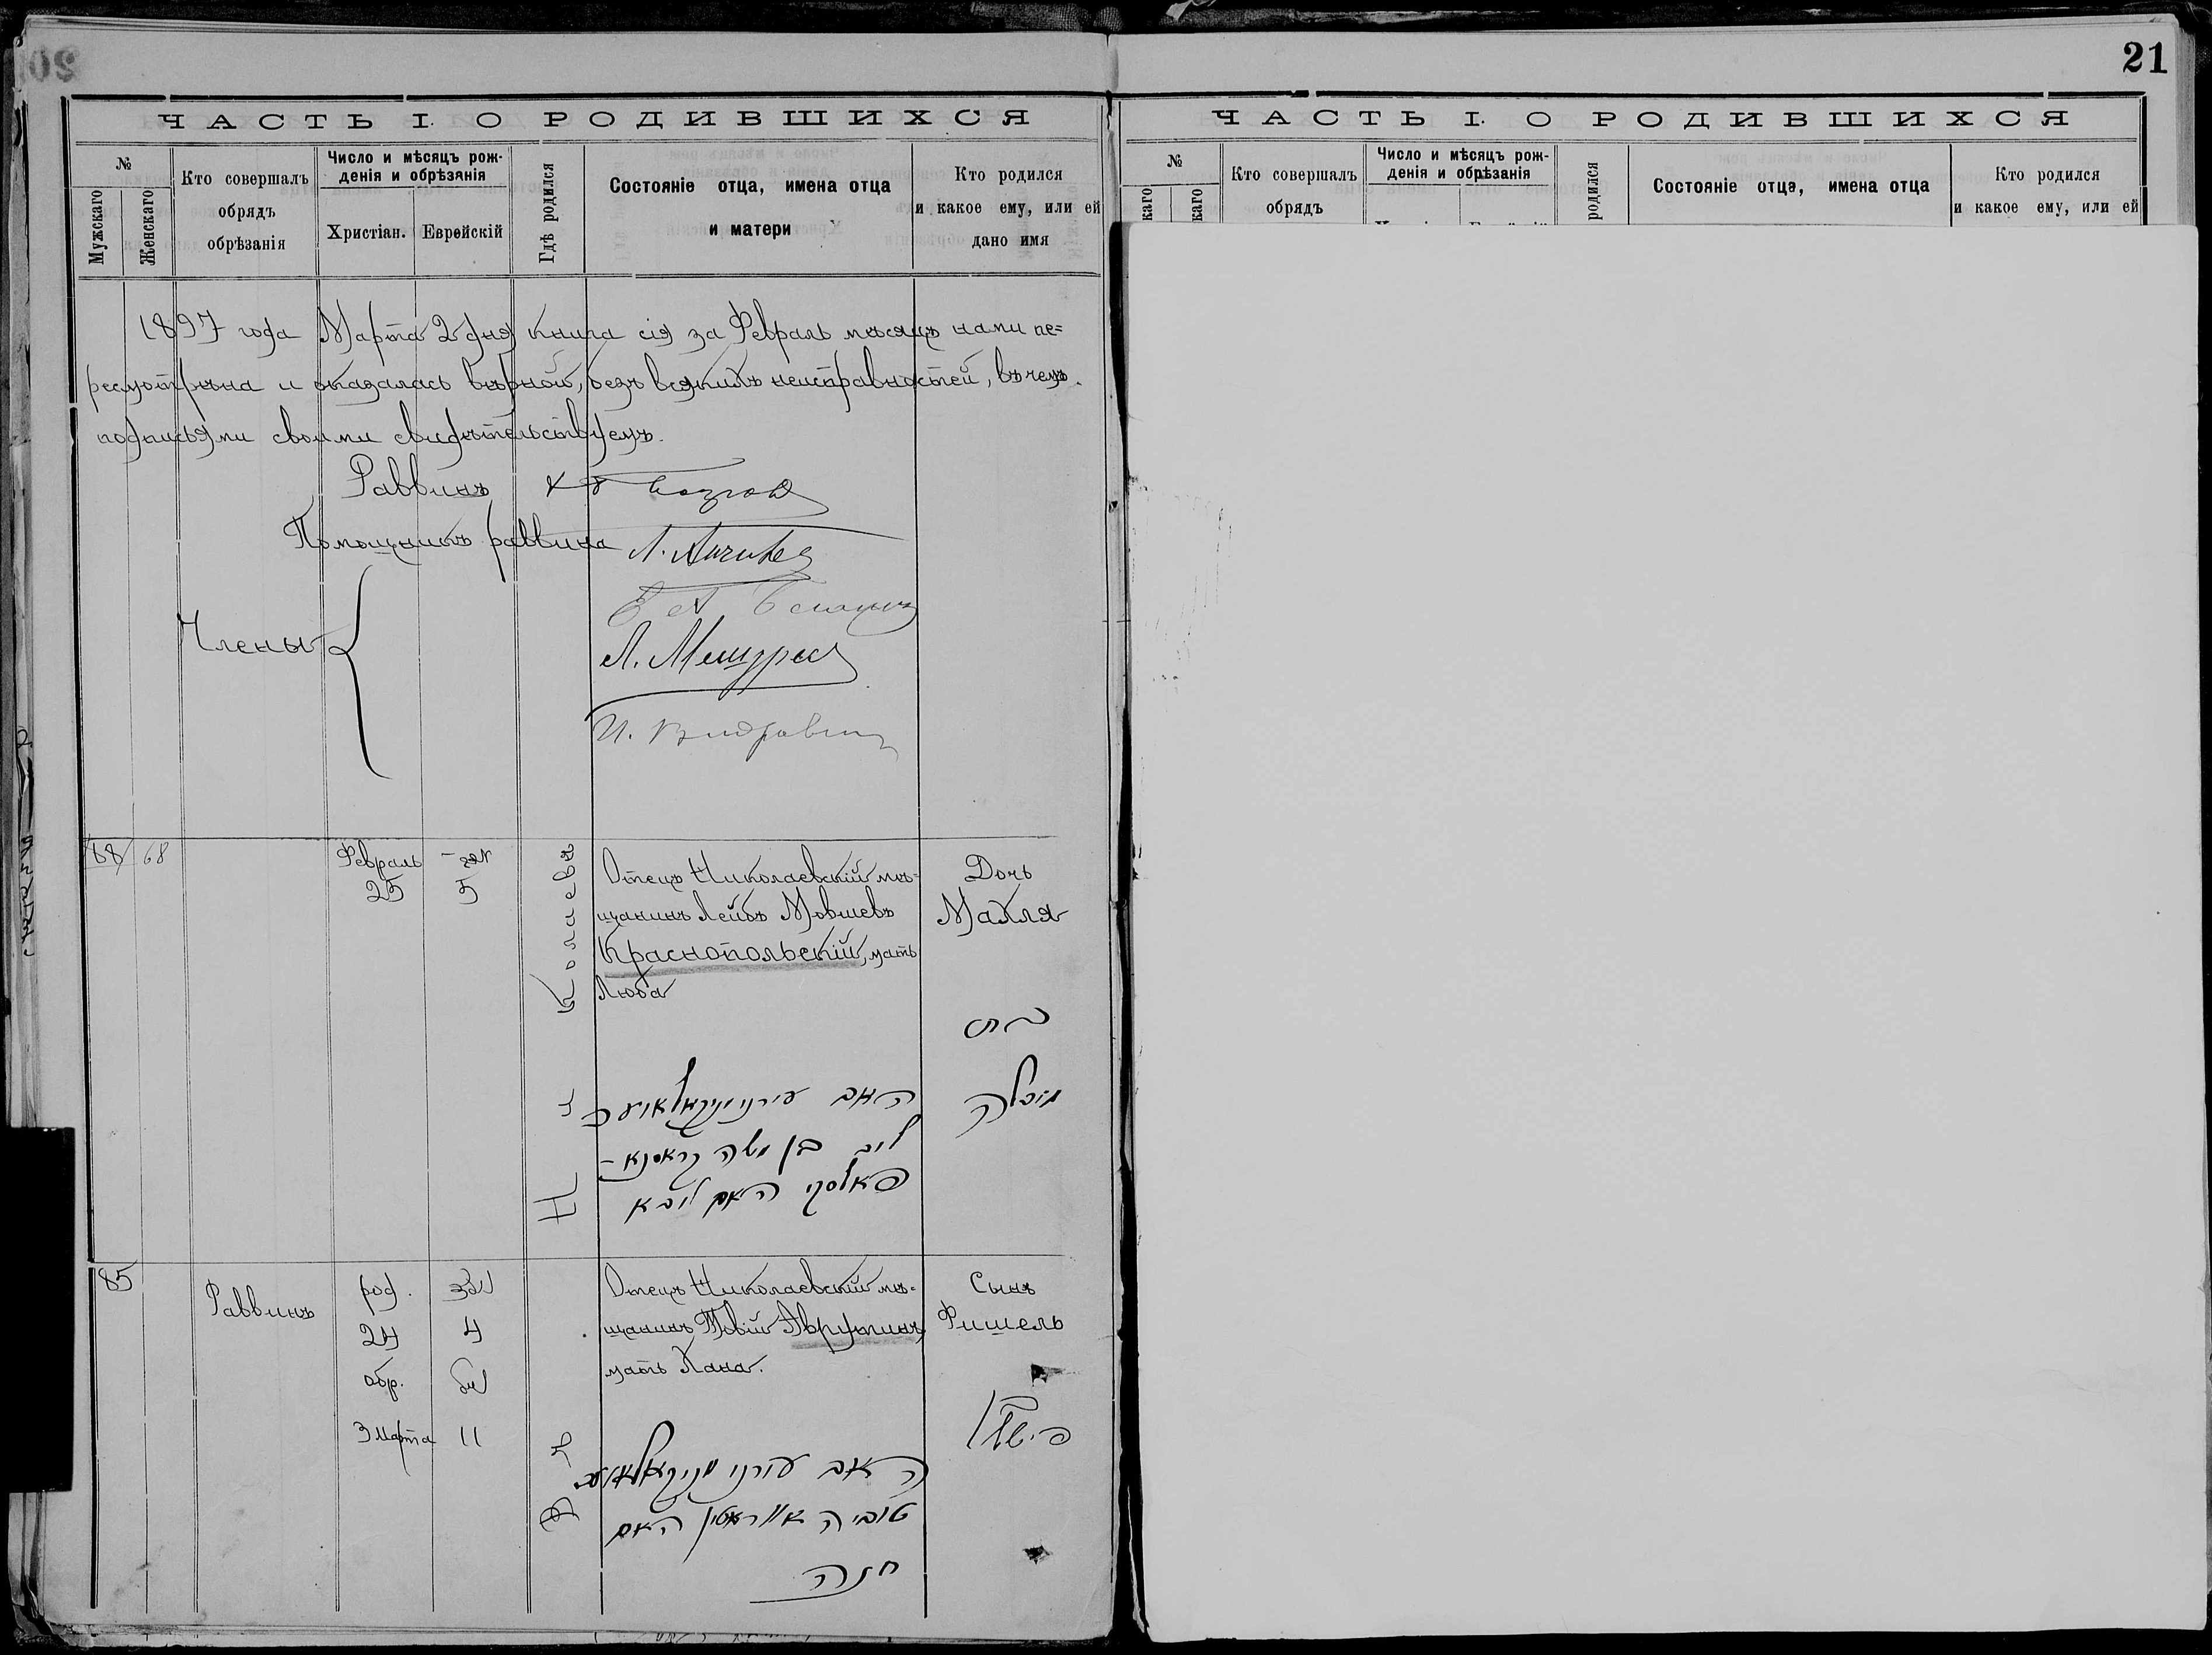 21
ЧАСТЬ I. О РОДИВШИХСЯ
№
Мужскаго
Женскаго
Кто совершалъ
обрядъ
обрѣзанія
Число и мѣсяцъ рож-
денія и обрѣзанія
Христіан.
Еврейскій
Гдѣ родился
Состояніе отца, имена отца
и матери
Кто родился
и какое ему, или ей
дано имя
1897 года Марта 2 дня книга сія за Февраль мѣсяцъ нами пе=
ресмотрѣна и оказалась вѣрной, безъ всякихъ неисправностей, въ чемъ
подписями своими свидѣтельствуемъ.
Раввинъ
Помощникъ раввина
Члены
Л. Мешурес
68
Февраль
25
5
Николаевѣ
Отецъ Николаевскій мѣ=
щанинъ Лейбъ Мовшевъ
Краснопольскій, мать
Люба
Дочь
Махля
בת
מחלה
האב עירוני מניקאלאיעוו
ליב בן משה קראסנא-
פאלסקי האם ליבא
85
Раввинъ
род.
24
4
обр.
3 марта
11
Отецъ Николаевскій мѣ=
щанинъ Товій Аврутинъ,
мать Хана.
Сынъ
Фишель
בן
פישל
האב עירוני מניקאלאיעוו
טוביה אווראטין האם
חנה
ЧАСТЬ I. О РОДИВШИХСЯ
№
каго
каго
Кто совершалъ
обрядъ
Число и мѣсяцъ рож-
денія и обрѣзанія
родился
Состояніе отца, имена отца
Кто родился
и какое ему, или ей